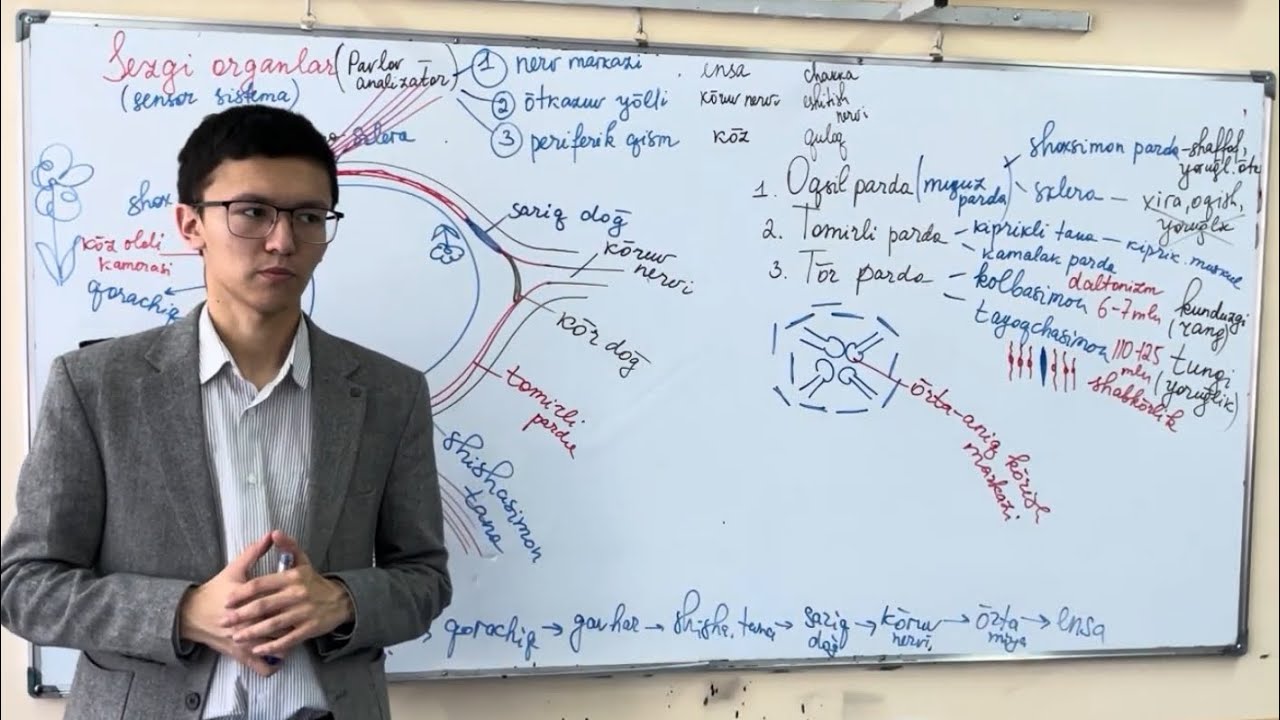 Sezgi organlar (Pavlov analizatōr)
(sensor sistema)
1 nerv markazi . ensa chakka
2 ōtkazuv yōlli kōruv nervi eshitish nervi
3 periferik qism kōz quloq
sklera
shox
kōz oldi
kamerasi
qorachiq
sariq doğ
kōruv
nervi
kōr doğ
tomirli
parda
shishasimon
tana
1. Oqsil parda (muguz parda)
shoxsimon parda - shaffof,
yoruğl. ōtk
sklera - xira, oqish,
yoruğlk
2. Tomirli parda - kiprikli tana - kiprik. muskul
- kamalak parda
3. Tōr parda - kolbasimon daltonizm
6-7 mln kunduzgi
(rang)
- tayoqchasimon 110-125
mln tungi
(yoruğlik)
shabkōrlik
ōrta-aniq kōrish
markazi
qorachiq → gavhar → shisha. tana → sariq doğ → kōruv nervi → ōrta miya → ensa